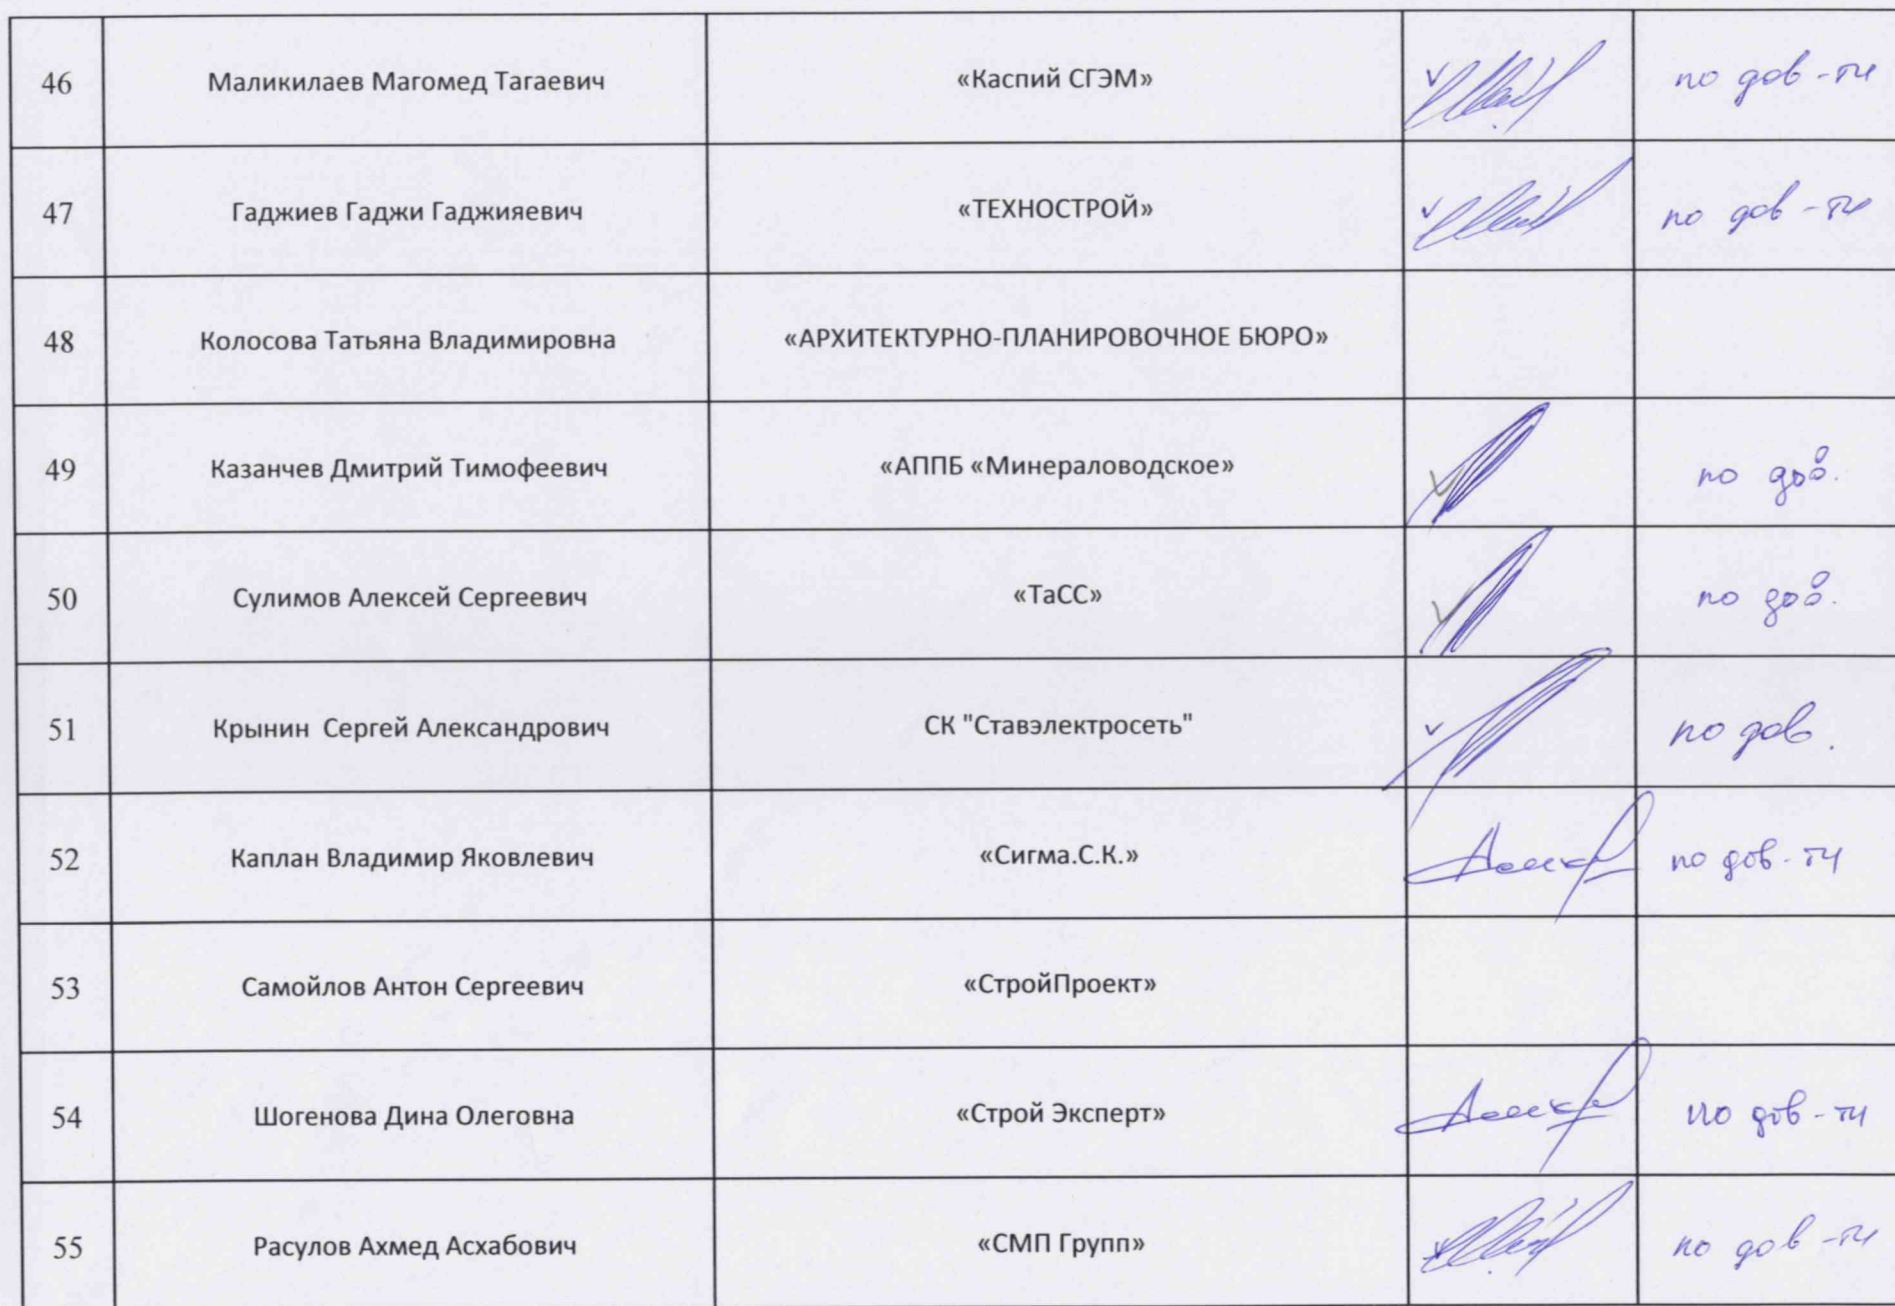 46 Маликилаев Магомед Тагаевич «Каспий СГЭМ» по дов-ти
47 Гаджиев Гаджи Гаджияевич «ТЕХНОСТРОЙ» по дов-ти
48 Колосова Татьяна Владимировна «АРХИТЕКТУРНО-ПЛАНИРОВОЧНОЕ БЮРО»
49 Казанчев Дмитрий Тимофеевич «АППБ «Минераловодское» по дов.
50 Сулимов Алексей Сергеевич «ТаСС» по дов.
51 Крынин Сергей Александрович СК "Ставэлектросеть" по дов.
52 Каплан Владимир Яковлевич «Сигма.С.К.» по дов-ти
53 Самойлов Антон Сергеевич «СтройПроект»
54 Шогенова Дина Олеговна «Строй Эксперт» по дов-ти
55 Расулов Ахмед Асхабович «СМП Групп» по дов-ти